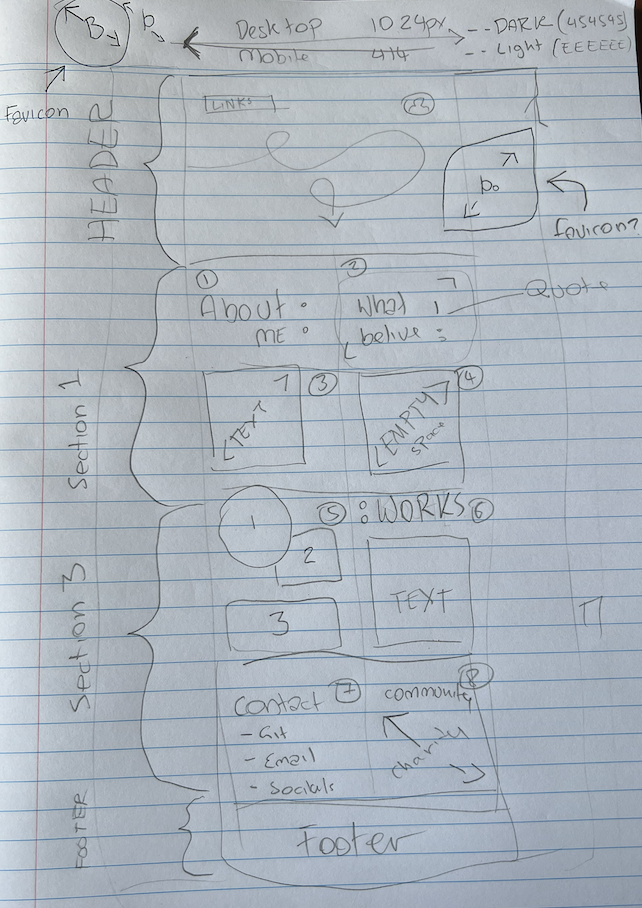 B
b
Desktop 1024px
Mobile 414
-- DARK (454545)
-- Light (EEEEEE)
Favicon
HEADER
LINKS
b.
favicon?
Section 1
1
About :
ME
2
What I
belive :
Quote
TEXT
3
EMPTY
SPACE
4
Section 3
1
2
3
5
: WORKS
6
TEXT
Contact
7
- Git
- Email
- Socials
community
8
charity
FOOTER
Footer